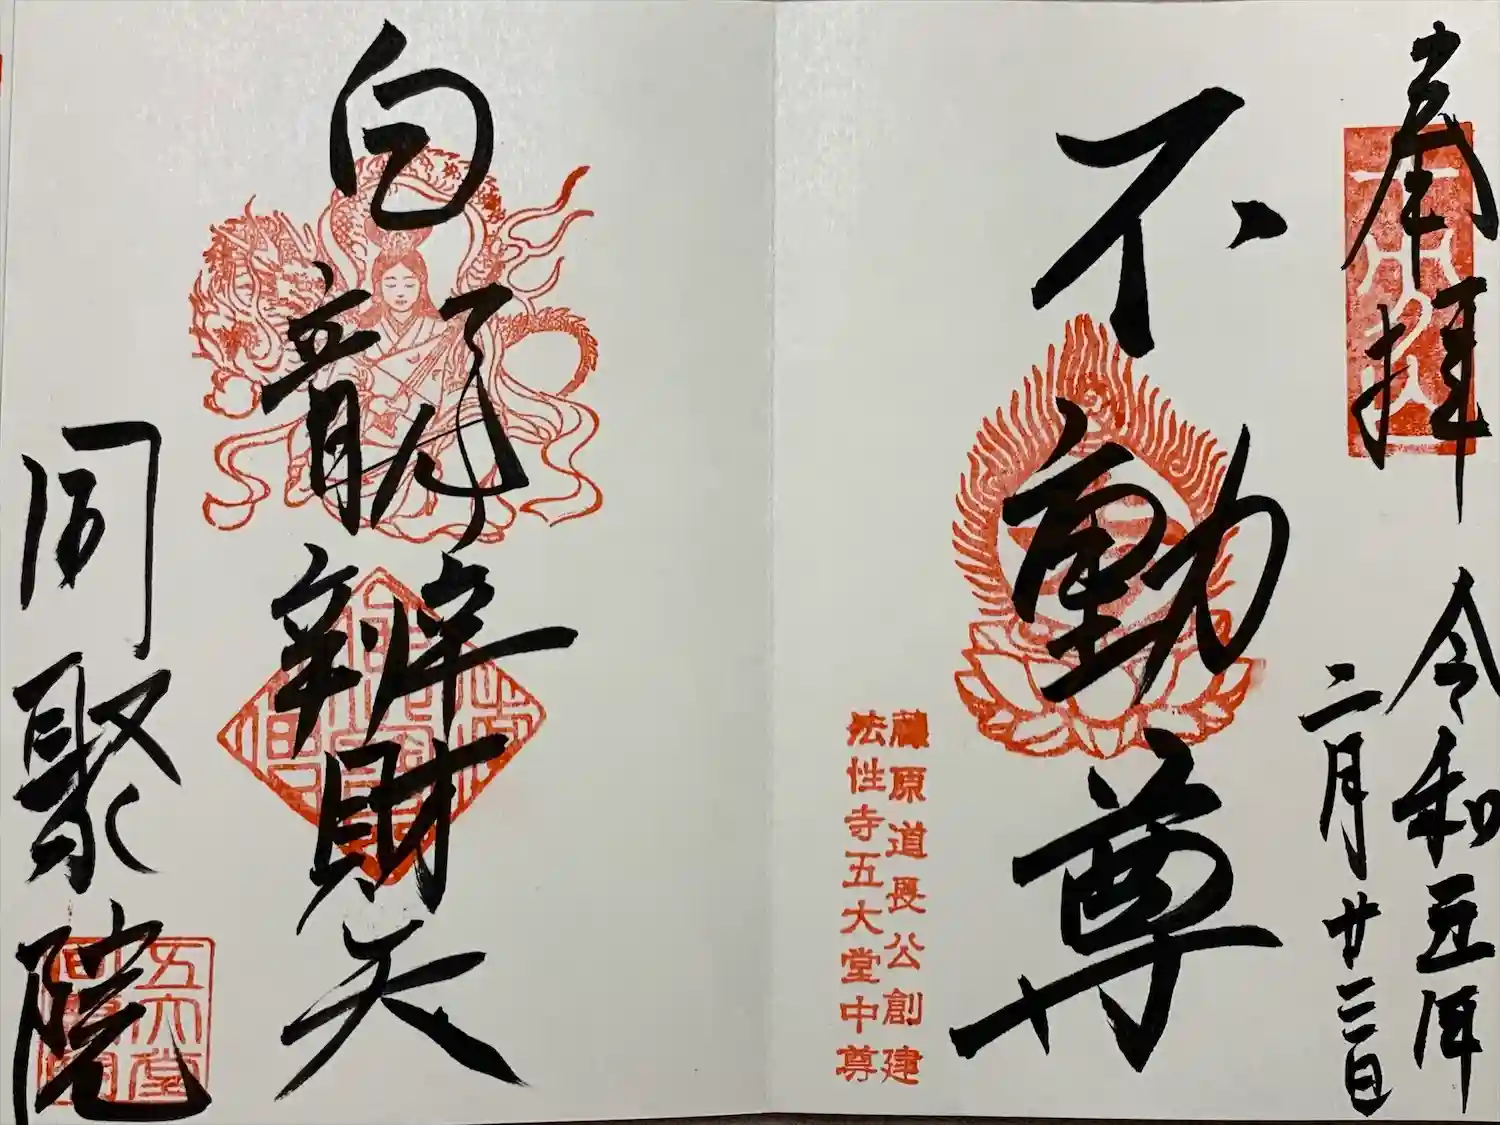 奉拝
令和五年
二月廿三日
不動尊
藤原道長公創建
法性寺五大堂中尊
白龍辨財天
同聚院
五大堂
同聚院